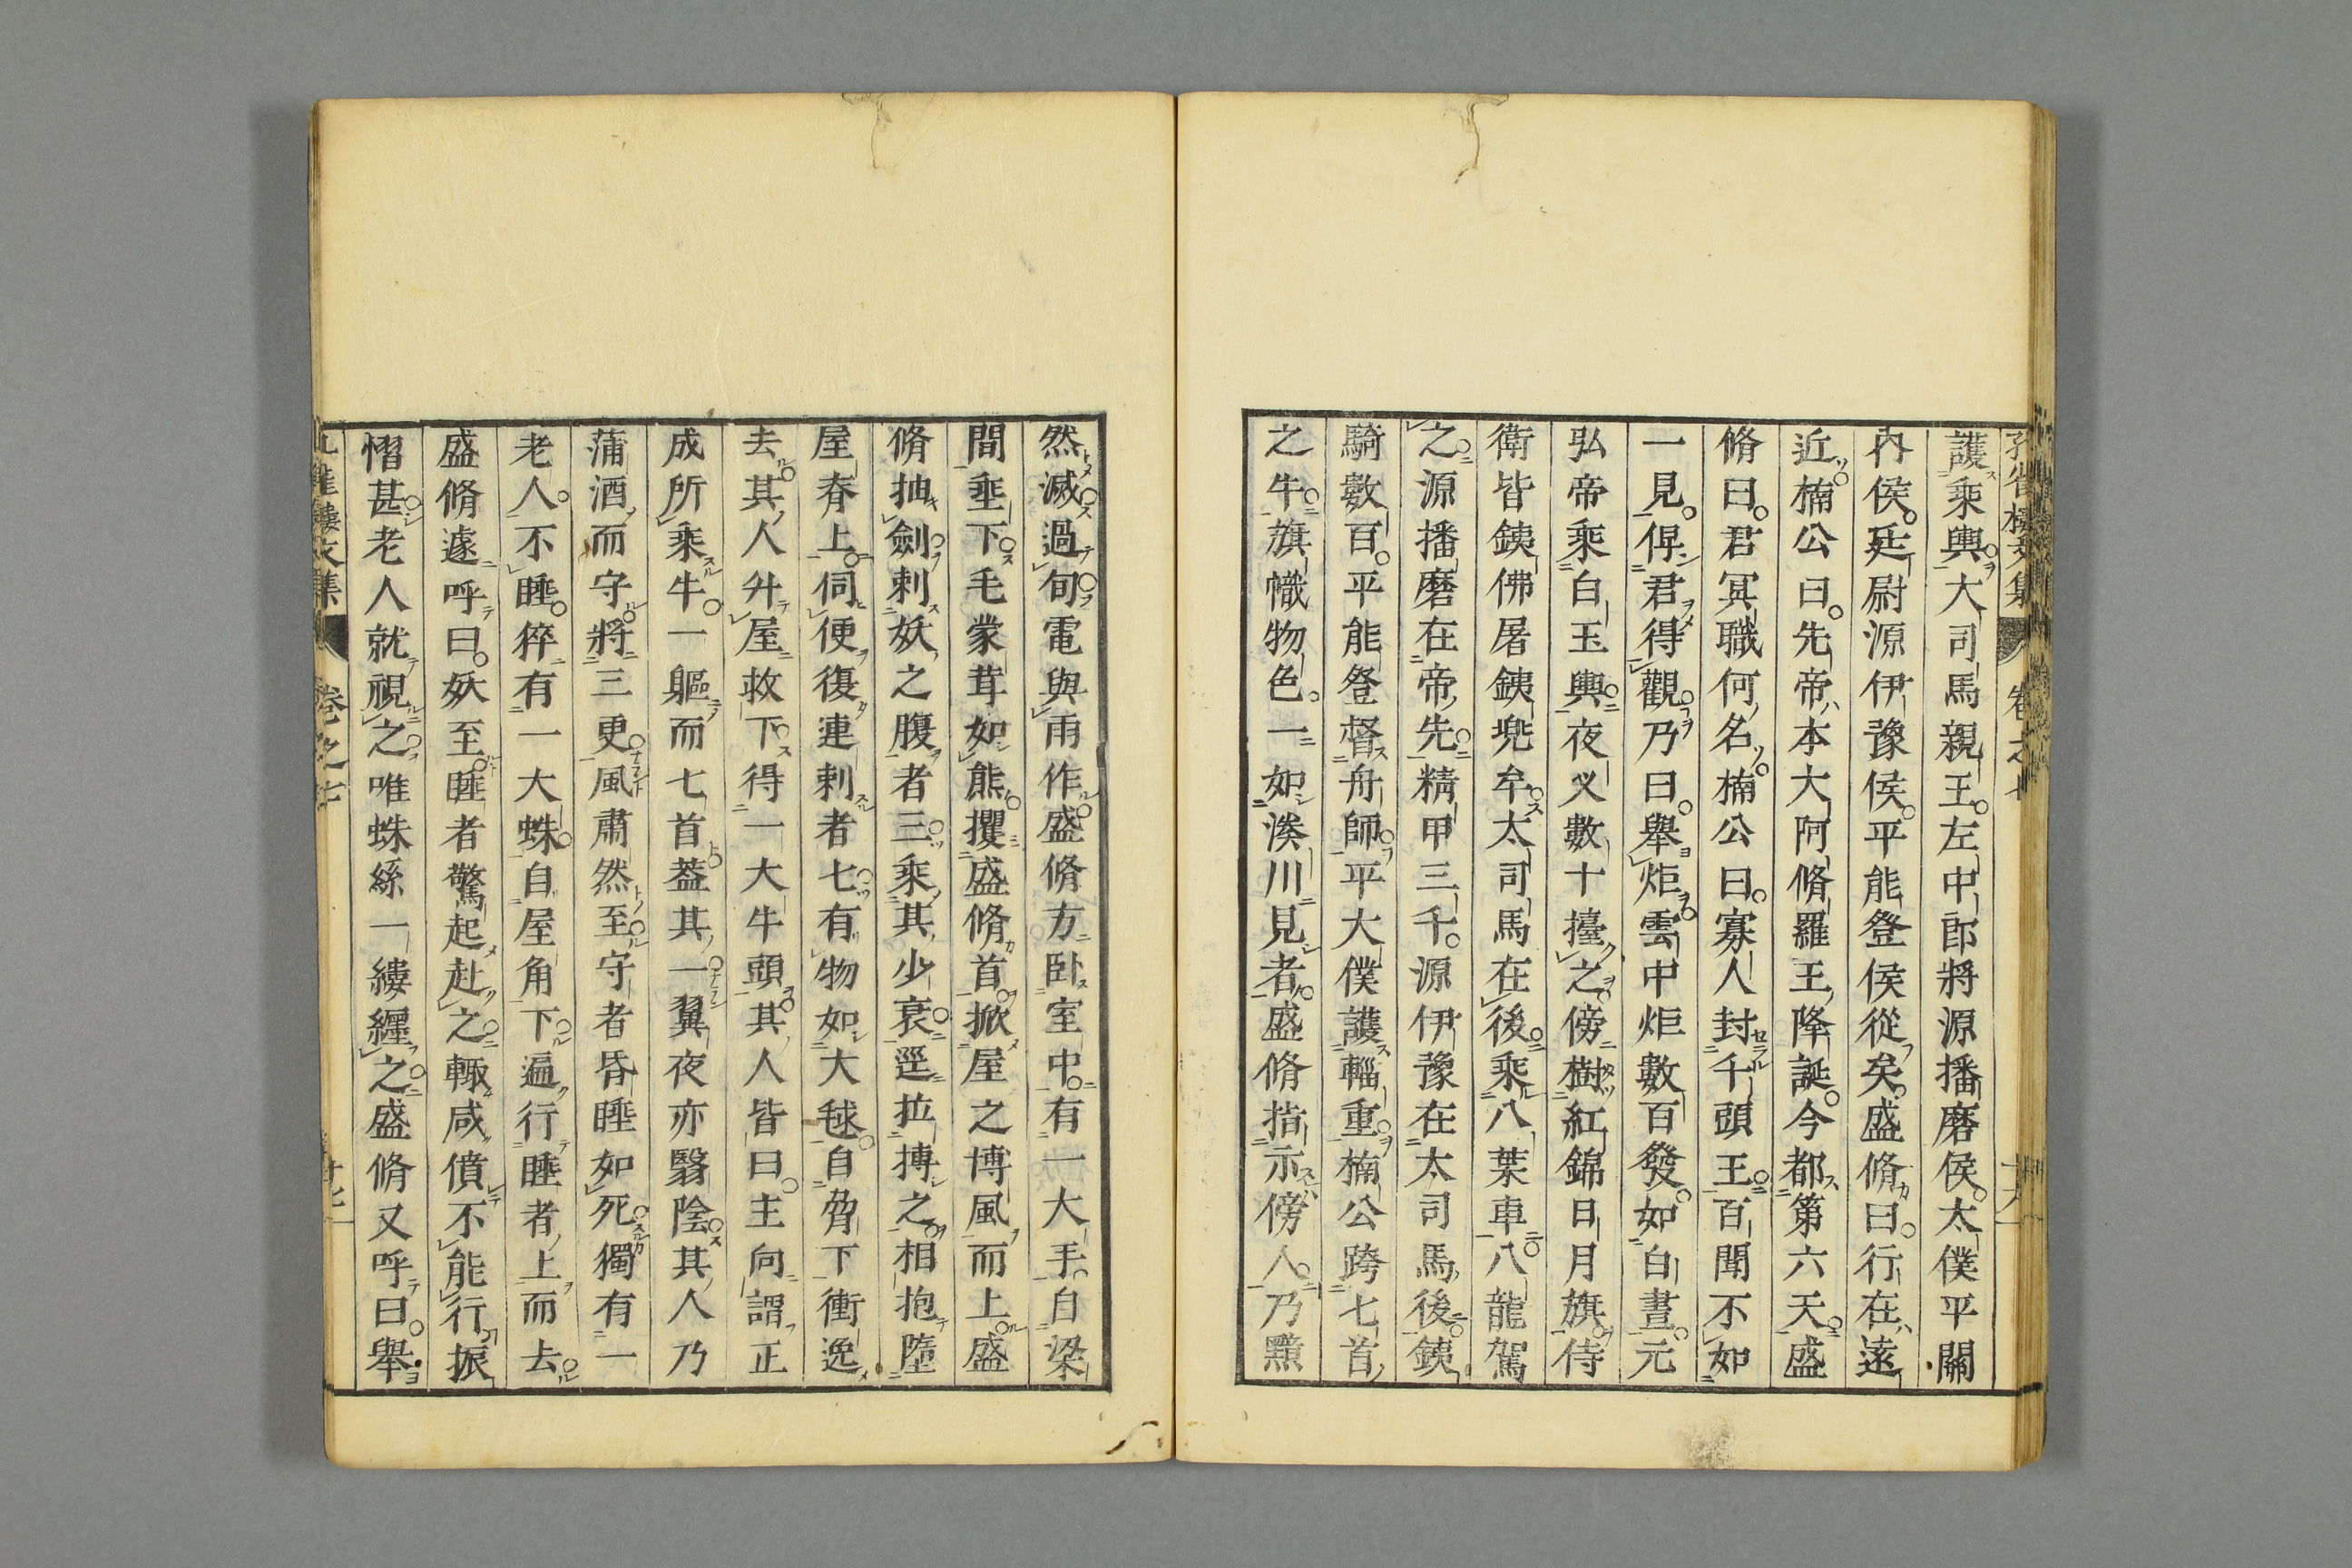 護乘輿大司馬親王左中郎將源播磨侯太僕平關
内侯廷尉源伊豫侯平能登侯從矣盛脩曰行在遠
近楠公曰先帝本大阿脩羅王降誕今都第六天盛
脩曰君冥職何名楠公曰寡人封千頭王百聞不如
一見俾君得觀乃曰舉炬雲中炬數百發如白晝元
弘帝乘白玉輿夜叉數十擡之傍樹紅錦日月旗侍
衛皆銕佛屠銕兜牟太司馬在後乘八葉車八龍駕
之源播磨在帝先精甲三千源伊豫在太司馬後銕
騎數百平能登督舟師平大僕護輜重楠公跨七首
之牛旗幟物色一如湊川見者盛脩指示傍人乃黯
然滅過旬電與雨作盛脩方臥室中有一大手自梁
間垂下毛蒙茸如熊攫盛脩首掀屋之博風而上盛
脩抽劍剌妖之腹者三乘其少衰逕拉搏之相抱墮
屋脊上伺便復連剌者七有物如大毬自脅下衝逸
去其人升屋救下得一大牛頭其人皆曰主向謂正
成所乘牛一軀而七首葢其一翼夜亦翳陰其人乃
蒲酒而守將三更風肅然至守者昏睡如死獨有一
老人不睡猝有一大蛛自屋角下遍行睡者上而去
盛脩遽呼曰妖至睡者驚起赴之輙咸僨不能行振
慴甚老人就視之唯蛛絲一縷纏之盛脩又呼曰舉
卷之七